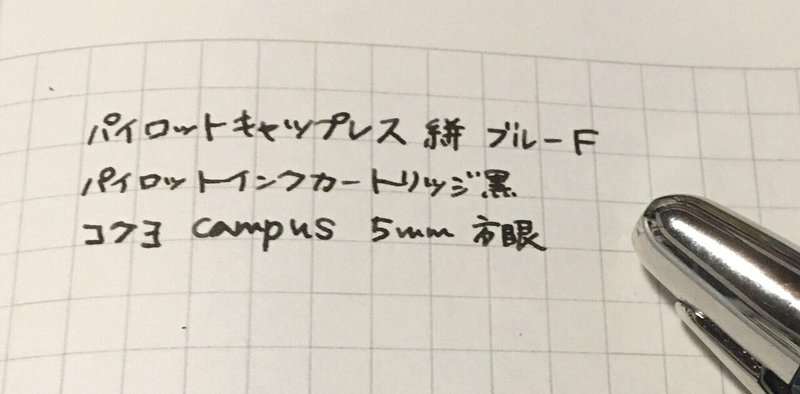 パイロットキャップレス 絣 ブルーF
パイロットインクカートリッジ黒
コクヨ campus 5mm 方眼